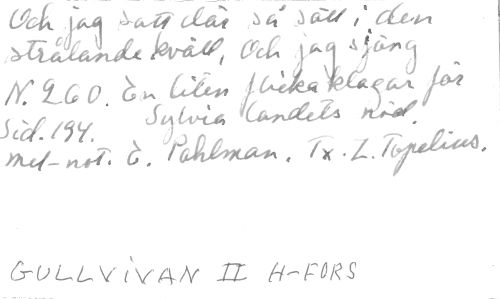 Och jag satt där så säll i den
strålande kväll, och jag sjöng
N. 260. En liten flicka klagar för
Sid. 194. Sylvia landets nöd.
mel-not. E. Pahlman. Tx. Z. Topelius.
GULLVIVAN II H-FORS